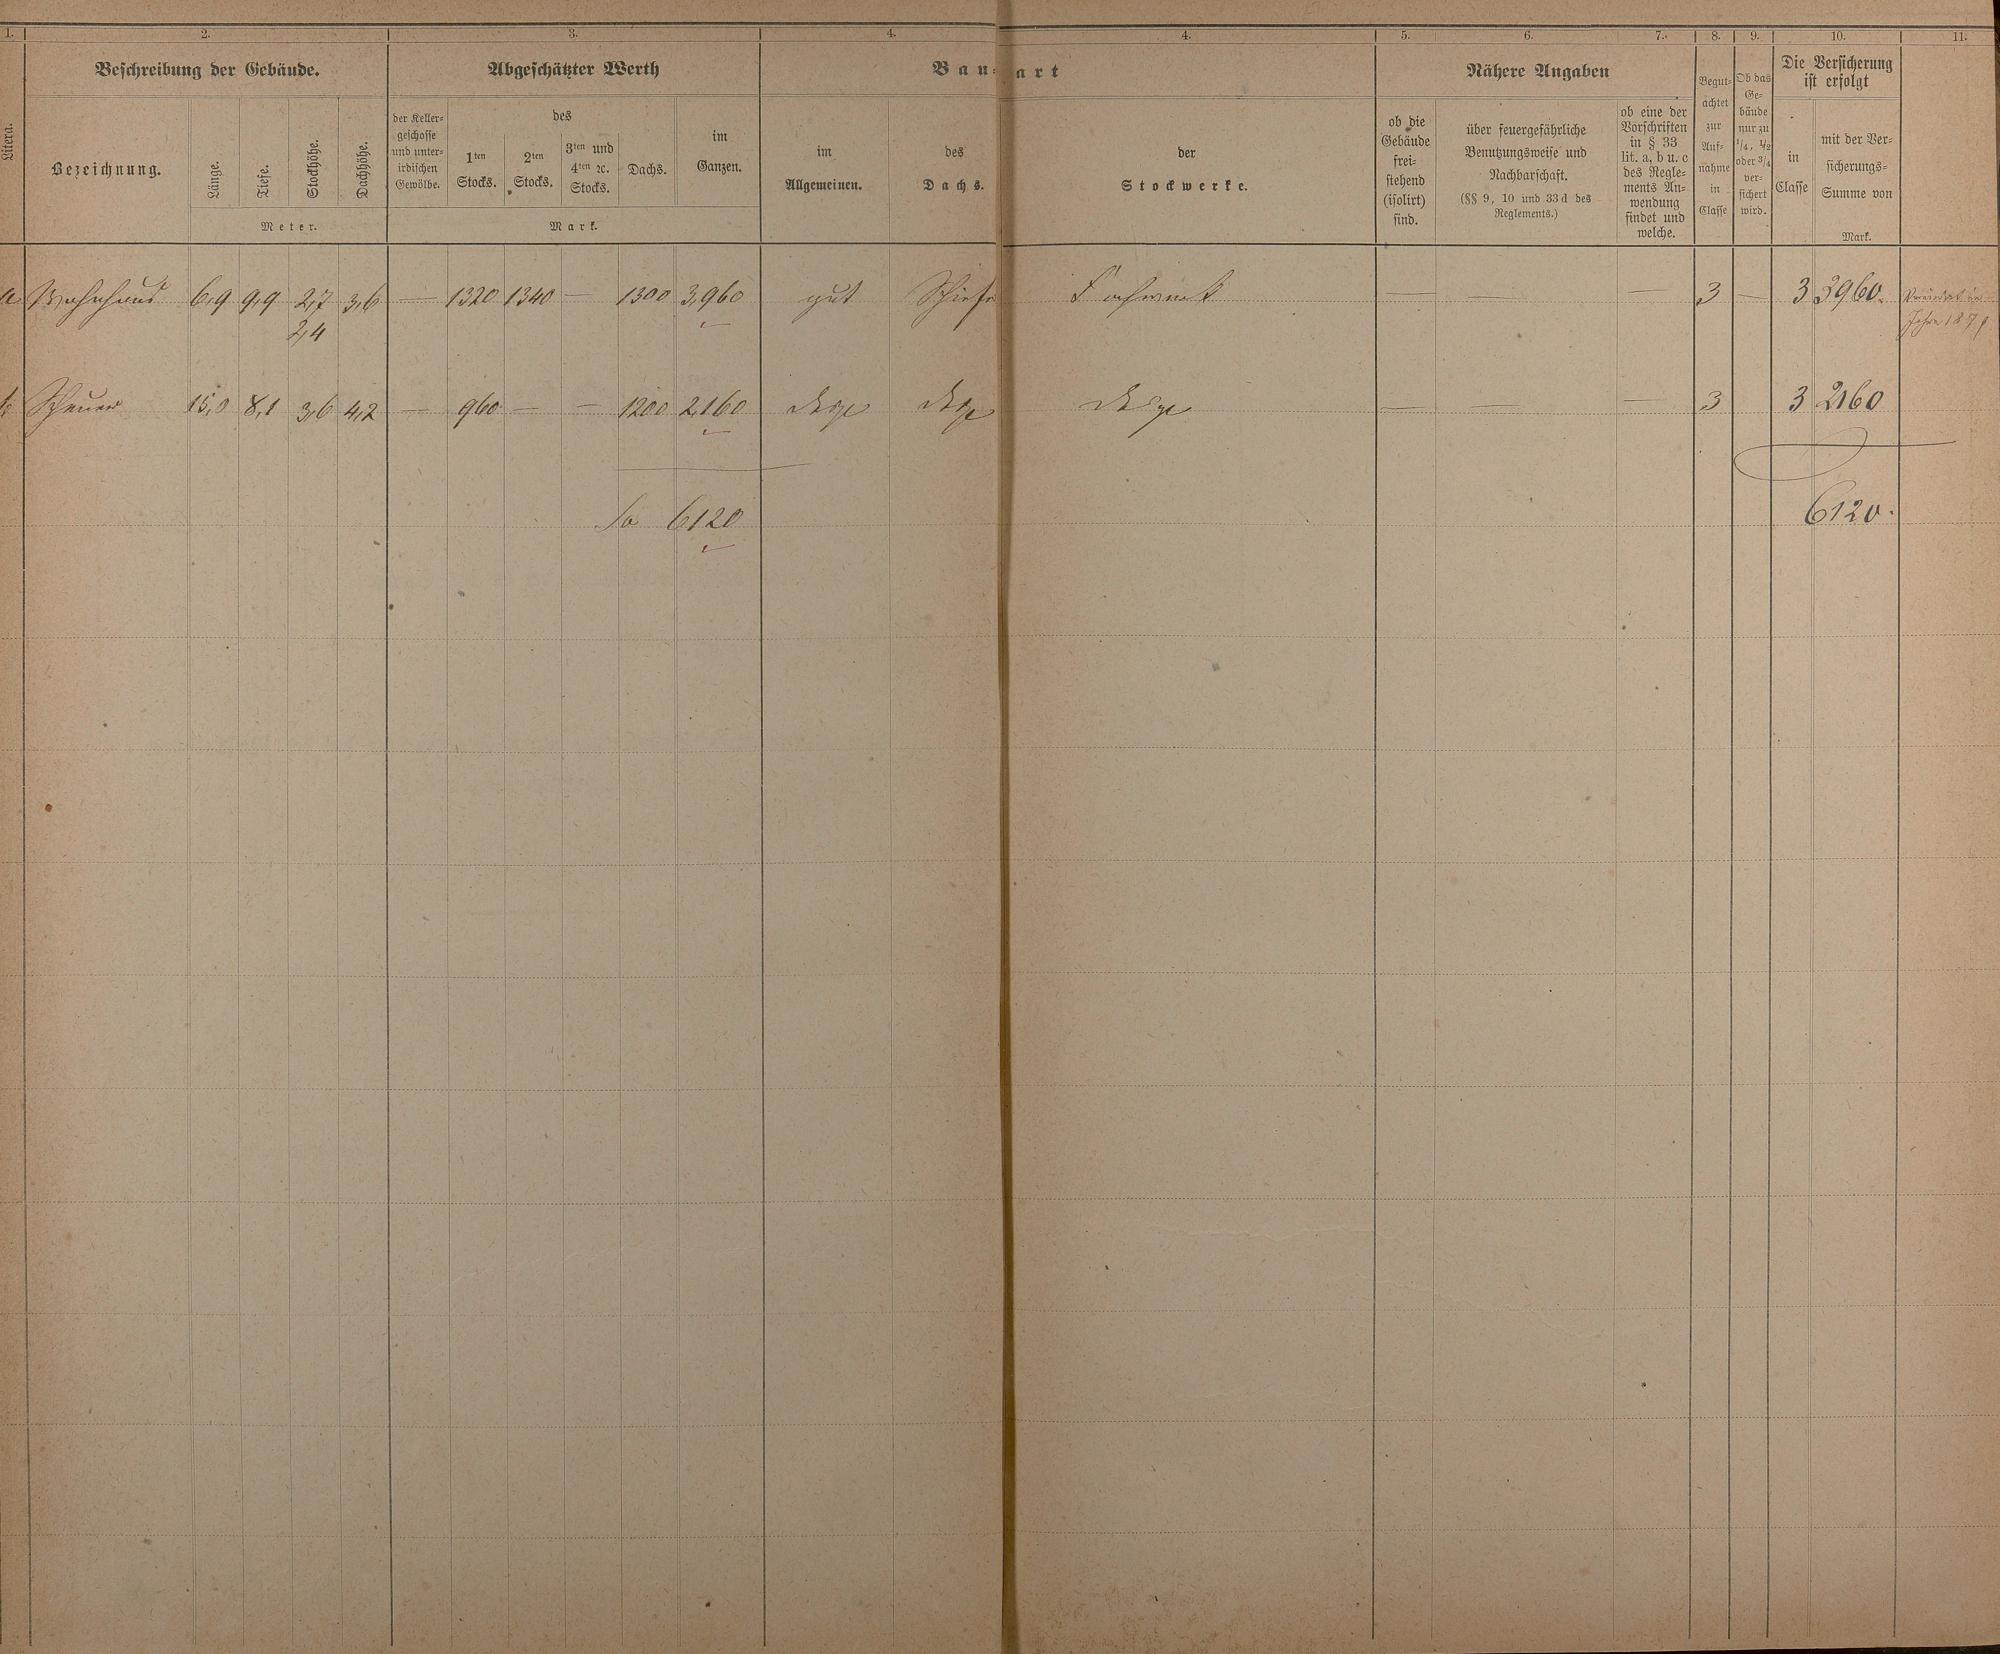 1. 2. 3. 4. 4. 5. 6. 7. 8. 9. 10. 11.
Litera.
Beschreibung der Gebäude.
Bezeichnung.
Länge.
Tiefe.
Stockhöhe.
Dachhöhe.
Meter.
Abgeschätzter Werth
der Keller-
geschosse
und unter-
irdischen
Gewölbe.
des
1ten
Stocks.
2ten
Stocks.
3ten und
4ten ꝛc.
Stocks.
Dachs.
im
Ganzen.
Mark.
Bau-art
im
Allgemeinen.
des
Dachs.
der
Stockwerke.
Nähere Angaben
ob die
Gebäude
frei-
stehend
(isolirt)
sind.
über feuergefährliche
Benutzungsweise und
Nachbarschaft.
(§§ 9, 10 und 33 d des
Reglements.)
ob eine der
Vorschriften
in § 33
lit. a, b u. c
des Regle-
ments An-
wendung
findet und
welche.
Begut-
achtet
zur
Auf-
nahme
in
Classe
Ob das
Ge-
bäude
nur zu
1/4, 1/2
oder 3/4
ver-
sichert
wird.
Die Versicherung
ist erfolgt
in
Classe
mit der Ver-
sicherungs-
Summe von
Mark.
a Wohnhaus 6,9 9,9 2,7 3,6 — 1320 1340 — 1300 3,960 gut Schiefer Fachwerk — — — 3 — 3 3960.
2,4
Jahre 187
b Scheuer 15,0 8,1 3,6 4,2 — 960 — — 1200 2,160 desgl desgl desgl — — — 3 3 2160
Sa 6120 6120.